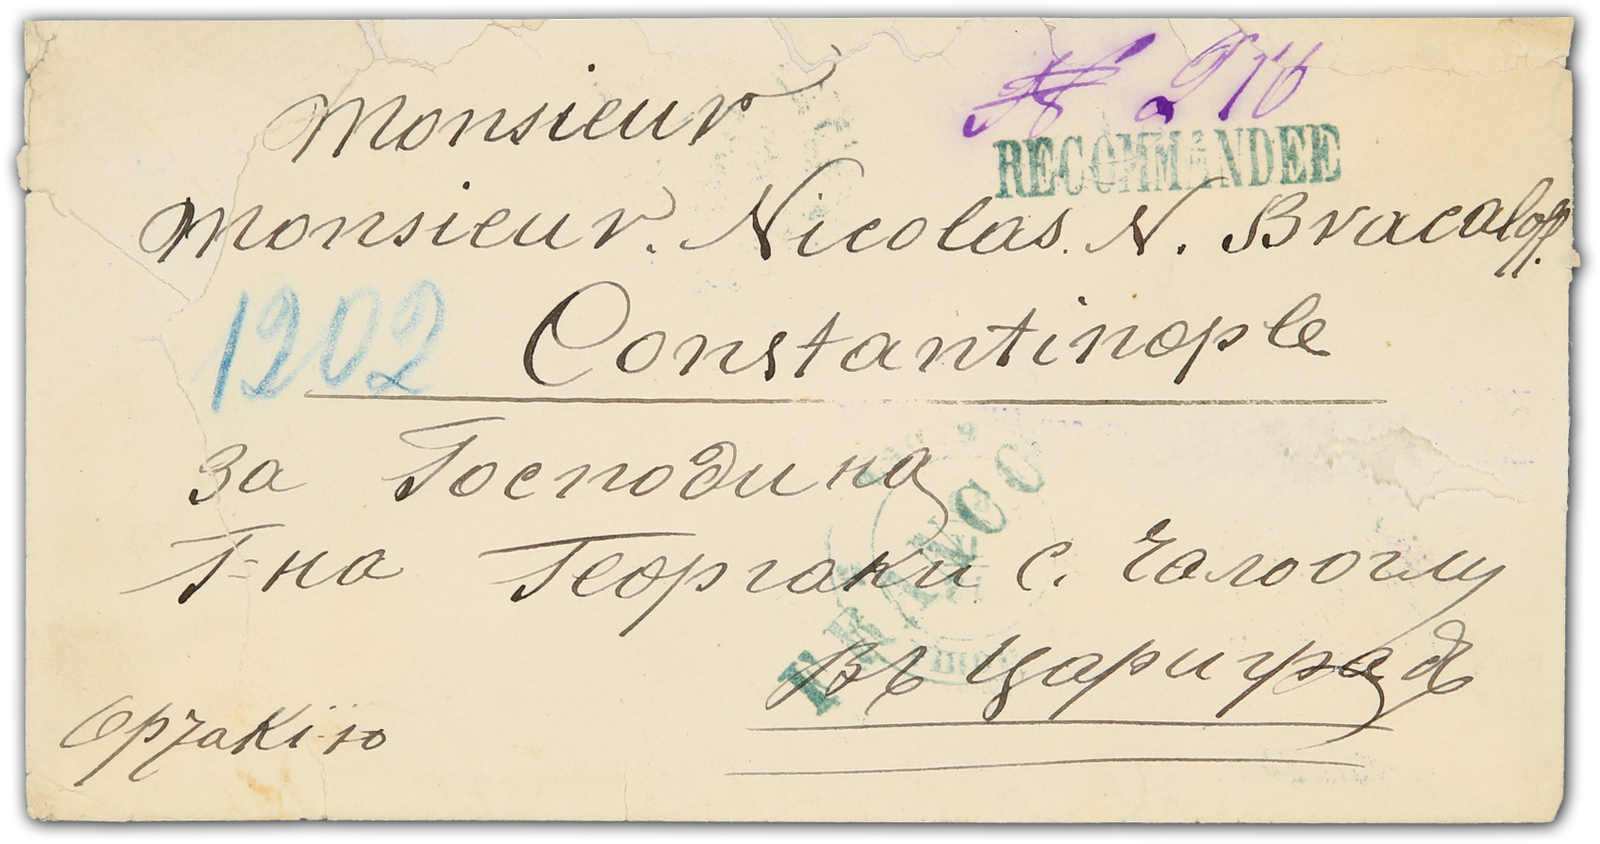 № 216
RECOMMANDEE
Monsieur
Monsieur. Nicolas. N. Bracaloff.
1202
Constantinople
за Господина
FRANCO
Г-на Георгаки С. Чалооглу
въ Цариградъ